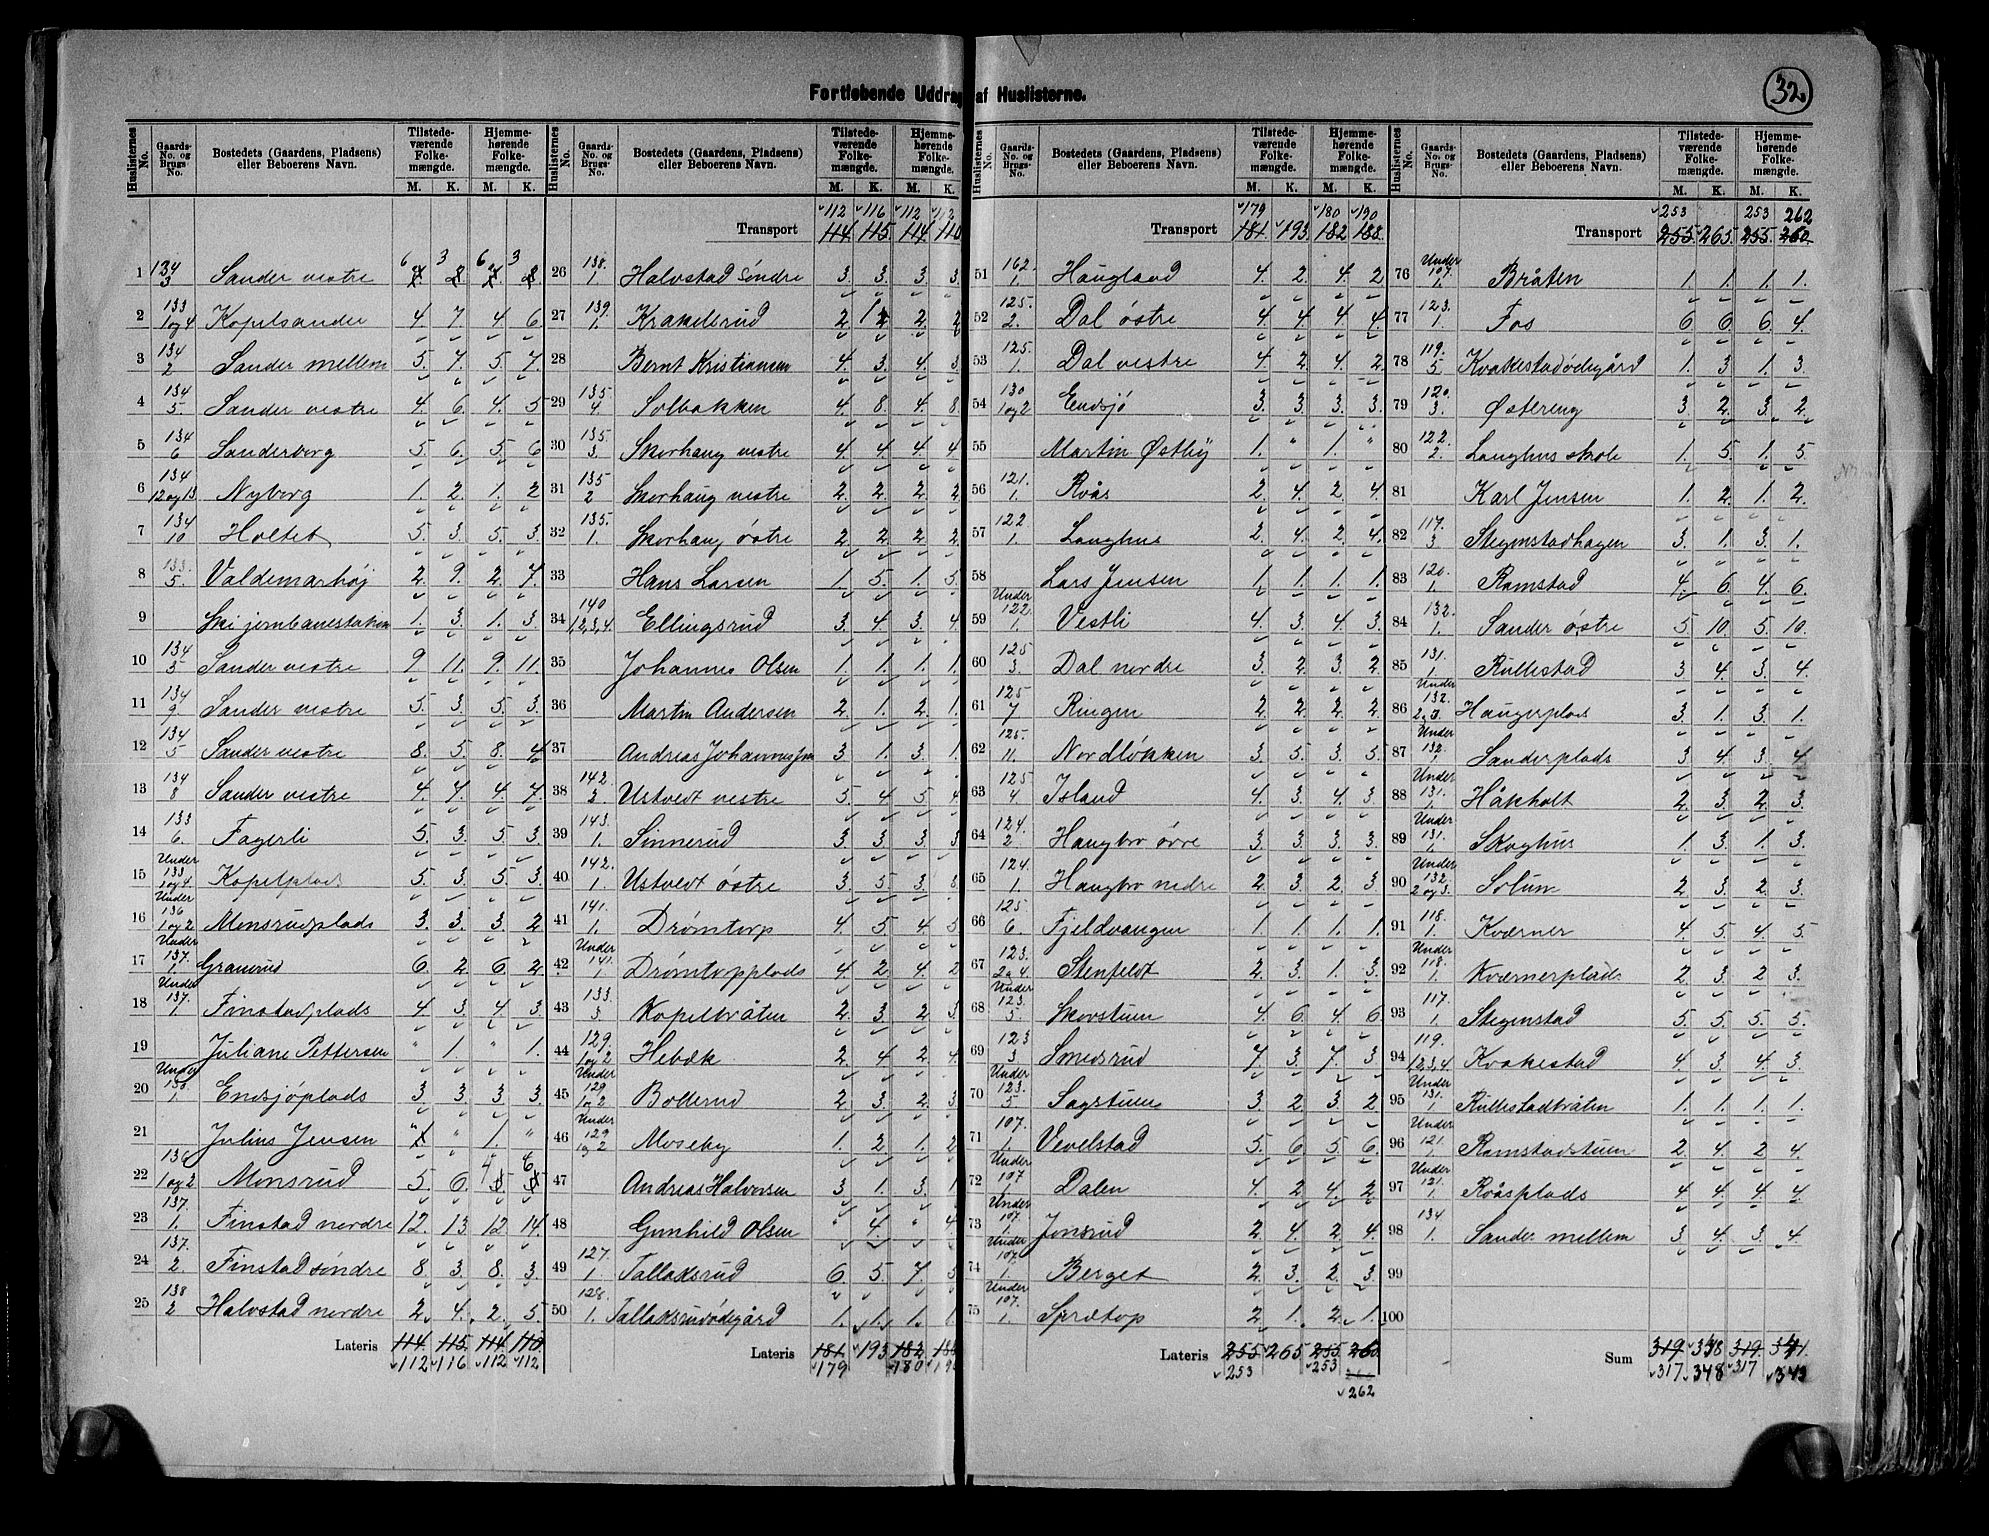 32.
Fortløbende Uddrag af Huslisterne.
Huslisternes No. Gaards-No. og Brugs-No. Bostedets (Gaardens, Pladsens) eller Beboerens Navn. Tilstedeværende Folkemængde. M. K. Hjemmehørende Folkemængde. M. K.
1 134 3 Sander vestre 6 3 6 3
2 133 1og4 Kopelsander 4. 7. 4. 6.
3 134 2 Sander mellem 5. 7. 5. 7.
4 134 5. Sander vestre 4. 6. 4. 5
5 134 6 Sanderborg 5. 6. 5. 6
6 134 12og13 Nyborg 1. 2. 1. 2
7 134 10 Holtet 5. 3. 5. 3.
8 133. 5. Valdemarhøj 2. 9. 2. 7.
9 Ski jernbanestation 1. 3. 1. 3.
10 134 5 Sander vestre 9 11. 9. 11.
11 134 9 Sander vestre 5. 3. 5. 3.
12 134 5 Sander vestre 8. 5. 8. 4
13 134 8 Sander vestre 4. 7. 4. 7.
14 133 6. Fagerli 5. 3. 5 3.
15 Under 133 1og4 Kopelplads 5. 3. 5. 3.
16 Under 136 1og2 Monsrudplads 3. 3. 3. 2
17 Under 137. 1. Granerud 6 2. 6 2.
18 Under 137. 1 Finstadplads 4 3. 4 3.
19 Juliane Pettersen " 1. " 1.
20 Under 130. 1 Endsjøplads 3. 3. 3. 3.
21 Julius Jensen " " 1. "
22 136 1og2 Monsrud 5. 6. 4 6
23 137. 1. Finstad nordre 12. 13. 12. 14.
24 137. 2. Finstad søndre 8. 3. 8. 3.
25 138 2 Halvstad nordre 2. 4. 2. 5.
Lateris 114. 115. 114. 110.
112 116 112 112
Transport 114. 115. 114. 110
112 116 112 112
26 138. 1 Halvstad søndre 3. 3. 3. 3.
27 139. 1. Krakelsrud 2. 1 2. 2
28 Bernt Kristiansen 4. 3. 4. 3
29 135. 4 Solbakken 4. 8. 4. 8
30 135. 3. Skorhaug vestre 4. 4. 4. 4
31 135 2 Skorhaug vestre 2. 2. 2. 2
32 135. 1. Skorhaug østre 2. 2. 2. 2
33 Hans Larsen 1. 5. 1. 5.
34 140 1,2,3,4 Ellingsrud 3. 4. 3. 4
35 Johannes Olsen 1. 1. 1. 1
36 Martin Andersen 2. 1. 2. 1
37 Andreas Johannesen 3. 1. 3. 1
38 142. 2. Ustvedt vestre 5. 4. 5 4
39 143. 1. Sinnerud 3. 3. 3. 3
40 142. 1. Ustvedt østre 3. 5. 3.
41 141. 1. Drømtorp 4. 5. 4 5
42 Under 141. 1 Drømtorpplads 4. 2. 4. 2
43 133. 3. Kopelbråten 2. 3. 2 3.
44 129. 1og2 Hebæk 2. 4. 2. 4.
45 Under 129 1og2 Bollerud 2. 3. 2. 3
46 Under 129 1og2 Moseby 1. 2. 1. 2
47 Andreas Halvorsen 3. 1. 3. 1
48 Gunhild Olsen " 4. " 4
49 127. 1 Talladsrud 6. 5. 7. 5
50 128. 1. Talladsrudødegård 1. 1. 1. 1
Lateris 181. 193. 182
179 180
Transport 181. 193. 182 188.
179 180 190
51 162. 1. Haugland 4. 2. 4. 2
52 125. 2. Dal østre 4. 4. 4. 4.
53 125. 1. Dal vestre 4. 2. 4. 2
54 130 1og2 Endsjø 3. 3. 3. 3.
55 Martin Østby 1. " 1. "
56 121. 1. Roås 2. 4. 2. 4.
57 122. 1. Langhus 2. 4. 2. 4.
58 Lars Jensen 1. 1. 1. 1.
59 Under 122. 1. Vestli 4. 3. 4. 3.
60 125 3. Dal nordre 3. 2. 3. 2
61 125 7 Ringen 2. 2. 2. 2.
62 125. 11. Nordløkken 3. 5. 3. 5
63 125 4 Island 4. 3. 4. 3.
64 124. 2 Haugbro øvre 3. 3. 3. 3.
65 124. 1 Haugbro nedre 2. 3. 2. 3.
66 125 6. Fjeldvangen 1. 1. 1. 1.
67 123. 2og4. Stenfeldt 2. 3. 1. 3.
68 Under 123. 5 Skorstuen 4. 6 4. 6
69 123 3. Smedsrud 7. 3. 7. 3
70 Under 123. 5 Sagstuen 3. 2. 3. 2
71 107. 1 Vevelstad 5. 6. 5. 6.
72 Under 107 1 Dalen 4. 2 4. 2.
73 Under 107. 1. Jonsrud 2. 4. 2. 4.
74 Under 107. 1. Berget 2. 3. 2. 3.
75 Under 107. 1. Sprætop 2. 1. 2. 1.
Lateris 255. 265. 255. 260.
253 253
262
Transport 255. 265. 255. 260.
253 253 262
76 Under 107. 1. Bråten 1. 1. 1. 1.
77 123. 1 Fos 6 6. 6. 4.
78 119. 5 Kvakestadødegård 1. 3 1. 3.
79 120. 3. Østereng 3. 2. 3. 2.
80 122. 2. Langhus skole 1. 5. 1. 5
81 Karl Jensen 1. 2. 1. 2.
82 117. 3 Stegenstadhagen 3. 1. 3. 1.
83 120. 1. Ramstad 4. 6. 4. 6.
84 132. 1. Sander østre 5. 10. 5. 10.
85 131. 1. Rullestad 3 4. 3. 4.
86 Under 132. 2og3. Haugerplads 3. 1. 3. 1.
87 Under 132. 1 Sanderplads 3. 4. 3. 4.
88 Under 131. 1. Håkholt 2. 3. 2. 3.
89 Under 131. 1. Skoghus 1. 3. 1. 3.
90 Under 132. 2og3. Solum 2. 3. 2. 3.
91 118. 1. Kværner 4. 5. 4. 5.
92 Under 118. 1. Kværnerplads 2. 3. 2 3.
93 117. 1. Stegenstad 5. 5. 5. 5.
94 119. 1,2,3,4. Kvakestad 4. 3. 4. 3.
95 Under 131. 1 Rullestadbråten 1. 1. 1. 1.
96 Under 121. 1 Ramstadstuen 2. 4. 2 4.
97 Under 121. 1. Roåsplads 4. 4. 4. 4.
98 134. 1. Sander mellem 3 4. 3. 4.
99
100
Sum 319 338 319. 341.
317 348 317 343